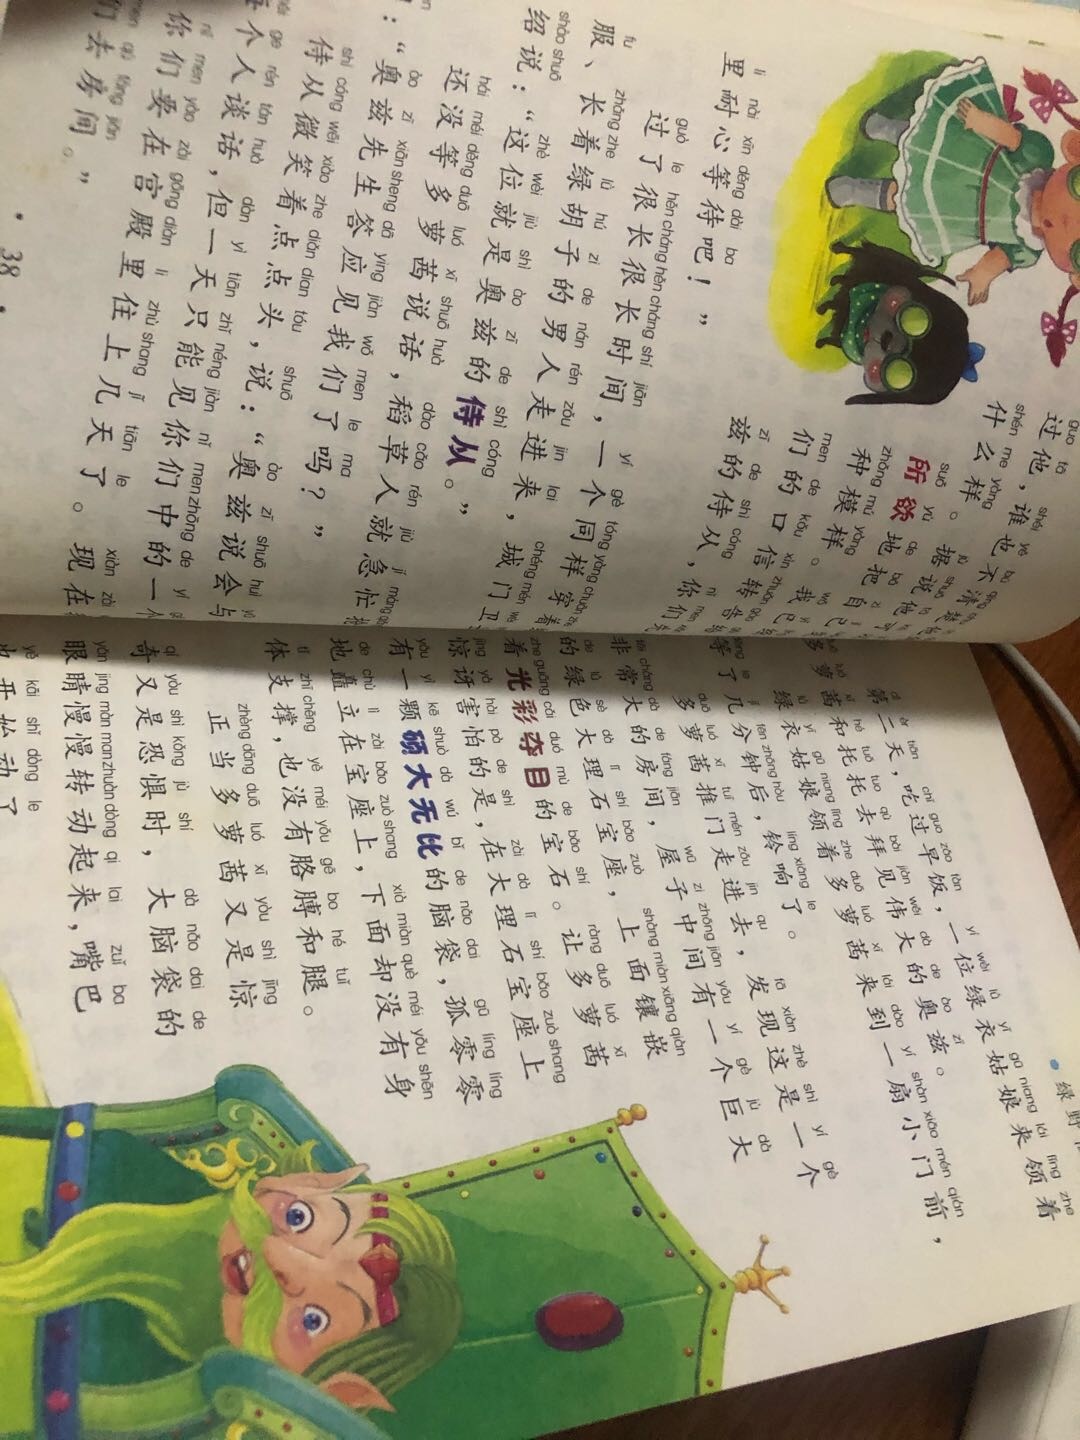 过他，谁也不清
什么样。据说他
所欲地把自己
种模样。我已
们的口信转告
兹的侍从，你们
里耐心等待吧！”
过了很长很长时间，一个同样穿着
服、长着绿胡子的男人走进来，城门卫
绍说：“这位就是奥兹的侍从。”
还没等多萝茜说话，稻草人就急忙
：“奥兹先生答应见我们了吗？”
侍从微笑着点点头，说：“奥兹说会与
每个人谈话，但一天只能见你们中的一个
你们要在宫殿里住上几天了。现在
们去房间。”
38
绿野
第二天，吃过早饭，一位绿衣姑娘来领着
多萝茜和托托去拜见伟大的奥兹。
绿衣姑娘领着多萝茜来到一扇小门前，
等了几分钟后，铃响了。
多萝茜推门走进去，发现这是一个
非常大的房间，屋子中间有一个巨大
的绿色大理石宝座，上面镶嵌
着光彩夺目的宝石。让多萝茜
惊讶害怕的是，在大理石宝座上
有一颗硕大无比的脑袋，孤零零
地矗立在宝座上，下面却没有身
体支撑，也没有胳膊和腿。
正当多萝茜又是惊
奇又是恐惧时，大脑袋的
眼睛慢慢转动起来，嘴巴
也开始动了